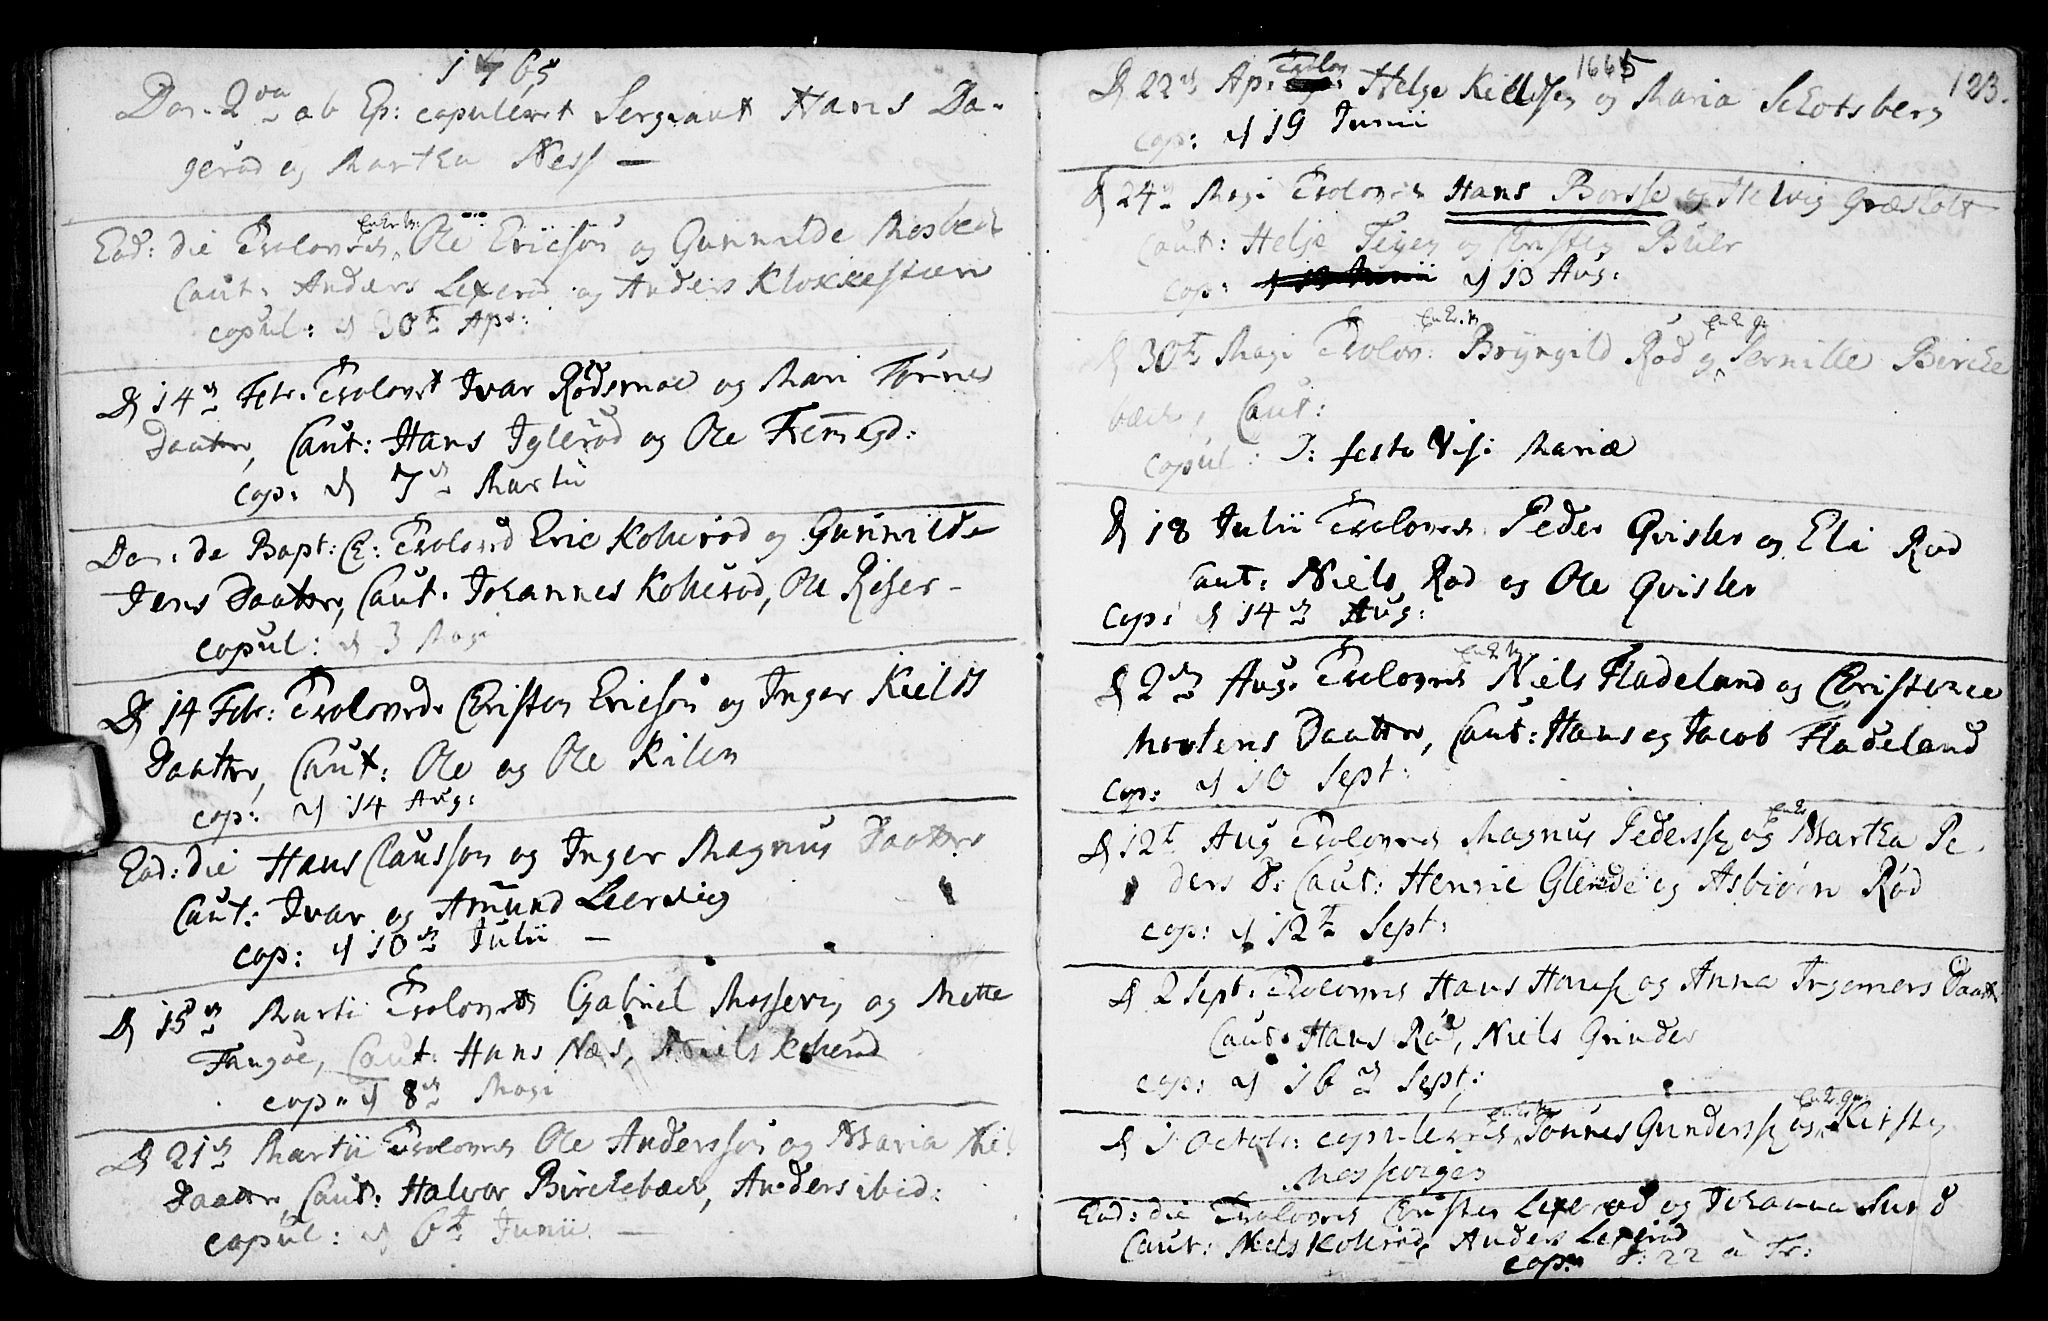 1765
Dom. 2da ab Ep: copuleret Sergiant Hans Da-
gerød og Martha Ness —
Eod: die Trolovede Enke m: Ole Ericsøn og Gunnilde Mosbech
Caut: Anders Lexerød og Anders Klokkestuen
copul: d 30te Apr:
D 14de Febr. Trolovet Ivar Rødsmoe og Mari
Daatter, Caut: Hans Iglerød og Ole
cop: d 7de Martii
Dom. de Bapt: C: Trolovd Eric Kollerød og Gunnilde
Jens Daatter, Caut. Johannes Kollerød, Ole Riser-
copul: d 3 Maji
D 14 Febr: Trolovede Christen Ericsøn og Inger Kields
Daatter, Caut: Ole og Ole Kilen
cop: d 14 Aug:
Eod: die Hans Clausson og Inger Magnus Daatter
Caut: Ivar og Amund Leervig
cop: d 10de Julii —
D 15de Martii Trolovede Gabriel Mossevig og Mette
Fangøe, Caut: Hans Næs, Niels Kollerød
cop: d 8de Maji
D 21de Martii Trolovede Ole Andersson og Maria
Daatter, Caut: Halvor Birchebæch, Anders ibid:
copul: d 6te Junii —
1665
123.
D 22de Ap: Trolov: Helge Kieldsen og Maria Skotsberg
cop: d 19 Junii
D 24de Maji Trolovede Hans Borsse og Helvig Græsholt
Caut: Helje Teigen og Christen Buer
cop: d 13 Junii d 13 Aug:
D 30te Maji Trolov: Enk. m. Bryngild Rød og Enk. q: Pernille Birche
bæch, Caut:
copul: D: festo Vis: Mariæ
D 18 Julii Trolovede Peder Qvisler og Eli Rød
Caut: Niels Rød og Ole Qvisler
Cop: d 14de Aug:
D 2de Aug. Trolovede Enk. m. Niels Fladeland og Christence
Mortens Daatter, Caut: Hans og Jacob Fladeland
cop: d 10 Sept:
D 12te Aug Trolovede Magnus Pederss: og Enke Martha Pe
ders D: Caut: Henric Glende og Asbiørn Rød
cop: d 12te Sept:
D 2 Sept. Trolovede Hans Hanss: og Anna Ingemers Daatter
Caut: Hans Rød, Niels Grinder
cop: d 16de Sept:
D 1 Octobr: copulerede Enk. m. Tønnes Gunderss: og Enk. qv: Kirsten
Mosvigen
Eod: die Trolovede Christen Lexerød og Johanna Sund
Caut: Niels Kollerød, Anders Lexerød
cop: D: 22 a Tr: